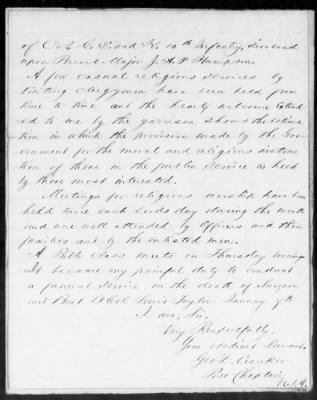 upon Brevet Major J. A. P. Hampson.
A few casual religious services by
visiting Clergymen have been held from
time to time and the hearty welcome extend-
ed to me by the garrison shows the estima-
tion in which the provision made by the Gov-
ernment for the moral and religious instruc-
tion of those in the public service is held
by those most interested.
Meetings for religious worship have been
held twice each Lords day during the month
and are well attended by Officers and their
families and by the enlisted men.
A Bible Class meets on Thursday evenings
It became my painful duty to conduct
a funeral service on the death of Surgeon
and Bvt Lt Col Lewis Taylor January 9th
I am, Sir,
Very Respectfully,
Your obedient Servant.
Post Chaplain
U.S.A.